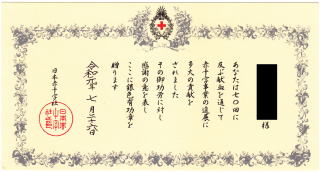 様
あなたは七〇回に
及ぶ献血を通じて
赤十字事業の進展に
多大の貢献を
されました
その御功労に対し
感謝の意を表し
ここに銀色有功章を
贈ります
令和元年七月二十六日
日本赤十字社